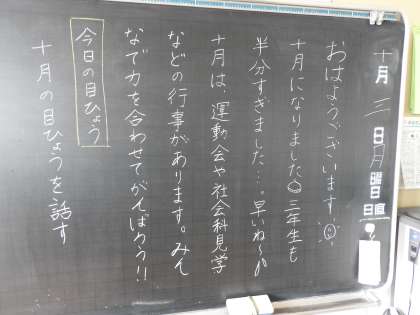 十月三日月曜日
日直
おはようございます。
十月になりました。三年生も
半分すぎました…。早いね～
十月は、運動会や社会科見学
などの行事があります。みん
なで力を合わせてがんばろう!!
今日の目ひょう
十月の目ひょうを話す